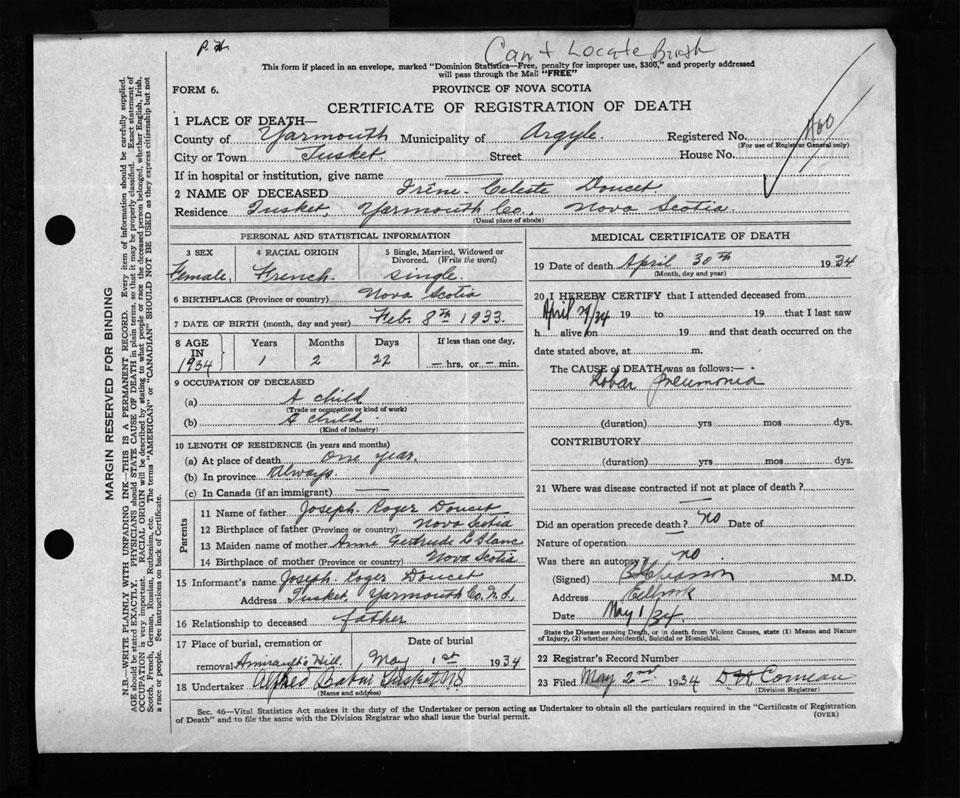 P.H.
Can't Locate Birth
This form if placed in an envelope, marked "Dominion Statistics—Free, penalty for improper use, $300," and properly addressed
will pass through the Mail "FREE"
FORM 6.
PROVINCE OF NOVA SCOTIA
CERTIFICATE OF REGISTRATION OF DEATH
1 PLACE OF DEATH—
County of Yarmouth Municipality of Argyle. Registered No.
(For use of Registrar General only)
City or Town Tusket. Street House No.
If in hospital or institution, give name —
2 NAME OF DECEASED Irène Celeste Doucet
Residence Tusket, Yarmouth Co., Nova Scotia.
(Usual place of abode)
PERSONAL AND STATISTICAL INFORMATION
3 SEX 4 RACIAL ORIGIN 5 Single, Married, Widowed or
Divorced. (Write the word)
Female. French. single.
6 BIRTHPLACE (Province or country) Nova Scotia
7 DATE OF BIRTH (month, day and year) Feb. 8th 1933.
8 AGE IN 1934 Years Months Days If less than one day,
1 2 22 — hrs. or — min.
9 OCCUPATION OF DECEASED
(a) A child
(Trade or occupation or kind of work)
(b) A child
(Kind of industry)
10 LENGTH OF RESIDENCE (in years and months)
(a) At place of death one year.
(b) In province Always.
(c) In Canada (if an immigrant) —
Parents
11 Name of father Joseph Roger Doucet
12 Birthplace of father (Province or country) Nova Scotia
13 Maiden name of mother Anne Gertrude LeBlanc
14 Birthplace of mother (Province or country) Nova Scotia
15 Informant's name Joseph Roger Doucet
Address Tusket, Yarmouth Co. N.S.
16 Relationship to deceased father
17 Place of burial, cremation or Date of burial
removal Amirault's Hill. May 1st 1934
18 Undertaker Alfred Tusket NS
(Name and address)
MEDICAL CERTIFICATE OF DEATH
19 Date of death April 30th 1934
(Month, day and year)
20 I HEREBY CERTIFY that I attended deceased from
April 29/34 19 to 19 that I last saw
h alive on 19 and that death occurred on the
date stated above, at m.
The CAUSE OF DEATH was as follows:—
Lobar pneumonia
(duration) yrs mos dys.
CONTRIBUTORY
(duration) yrs. mos. dys.
21 Where was disease contracted if not at place of death?
—
Did an operation precede death? no Date of
Nature of operation —
Was there an autopsy? no
(Signed) M.D.
Address Eelbrook
Date May 1/34
State the Disease causing Death, or in death from Violent Causes, state (1) Means and Nature
of Injury, (2) whether Accidental, Suicidal or Homicidal.
22 Registrar's Record Number
23 Filed May 2nd 1934 Comeau
(Division Registrar)
Sec. 46—Vital Statistics Act makes it the duty of the Undertaker or person acting as Undertaker to obtain all the particulars required in the "Certificate of Registration
of Death" and to file the same with the Division Registrar who shall issue the burial permit.
(OVER)
MARGIN RESERVED FOR BINDING
N.B.—WRITE PLAINLY WITH UNFADING INK—THIS IS A PERMANENT RECORD. Every item of information should be carefully supplied.
AGE should be stated EXACTLY. PHYSICIANS should STATE CAUSE OF DEATH in plain terms, so that it may be properly classified. Exact statement of
OCCUPATION is very important. RACIAL ORIGIN will be described by stating to what people or race the deceased person belonged, whether English, Irish,
Scotch, French, German, Russian, Ruthenian, etc. The terms "AMERICAN" or "CANADIAN" SHOULD NOT BE USED as they express citizenship but not
a race or people. See instructions on back of Certificate.